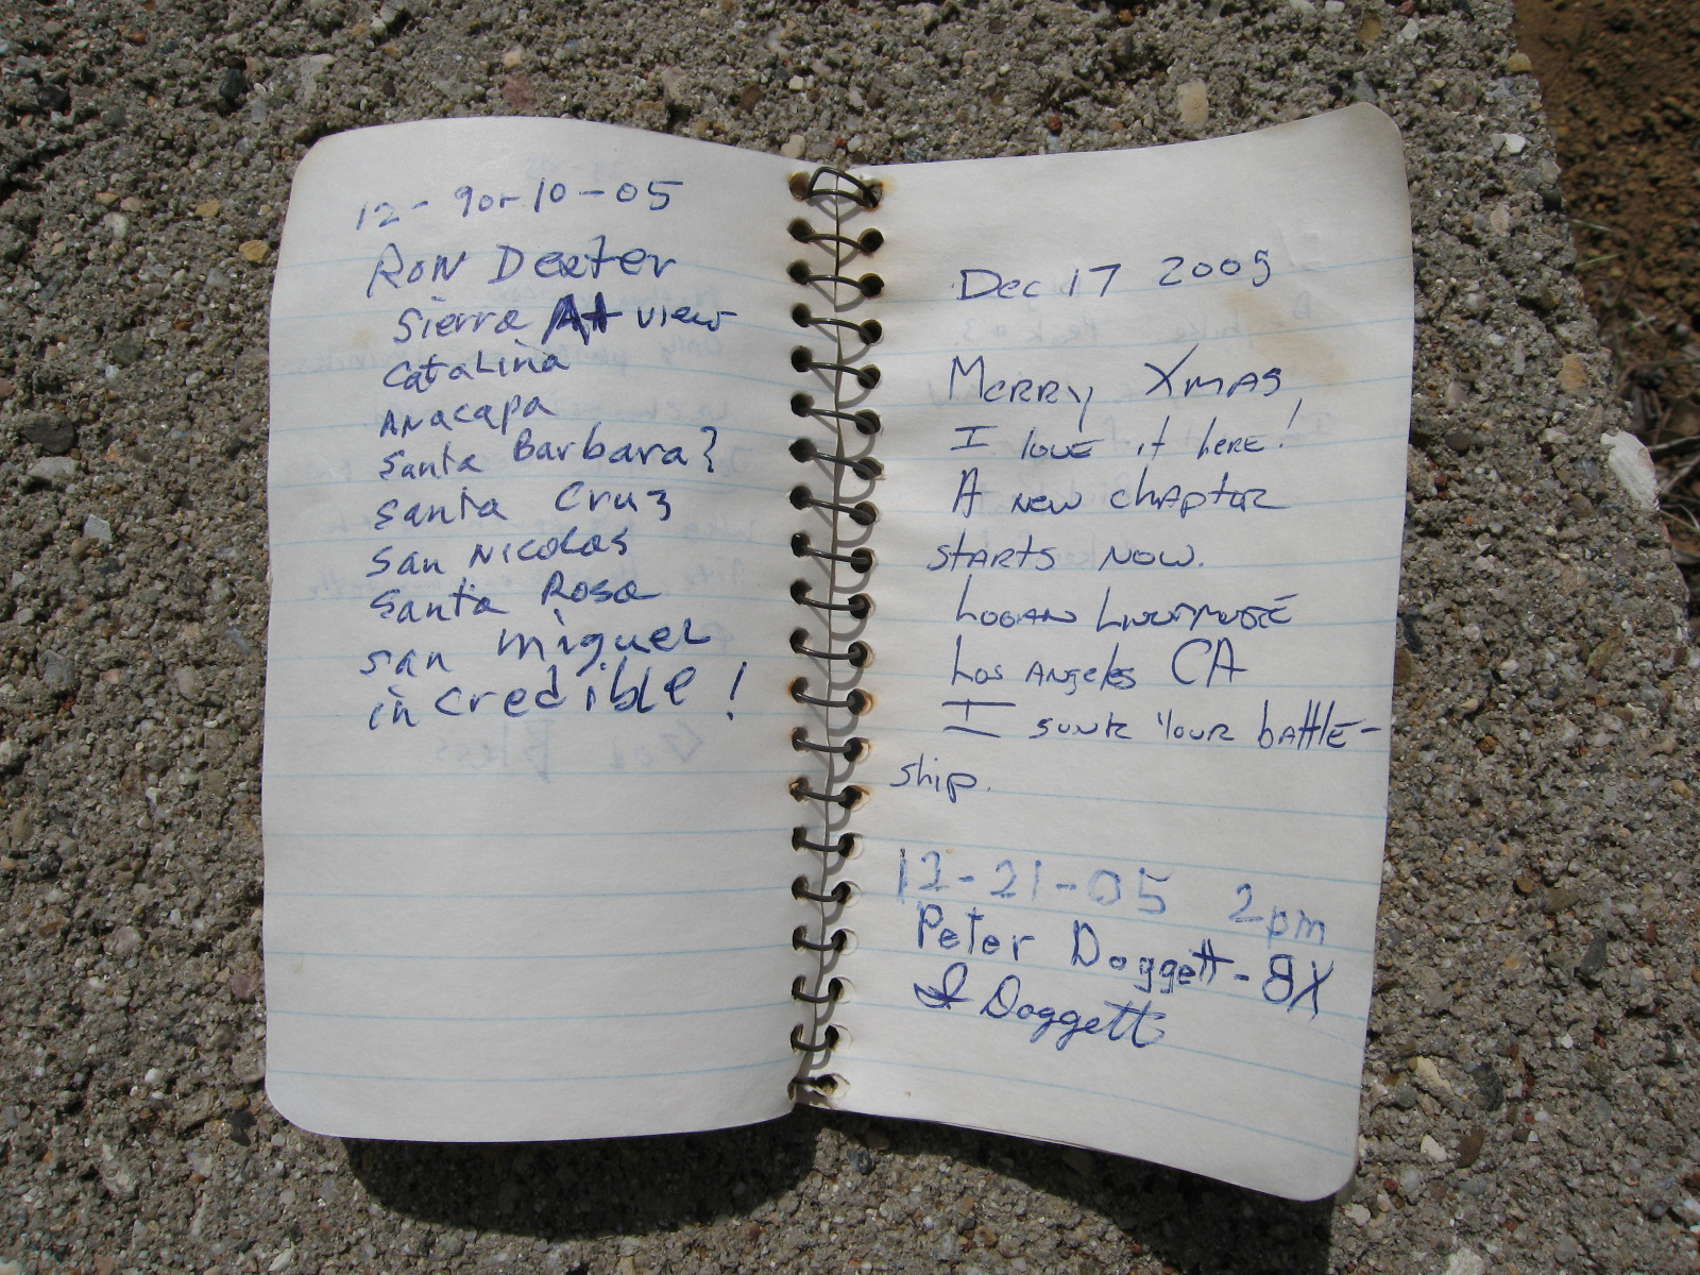 12-9or10-05
Ron Dexter
Sierra At view
Catalina
Anacapa
Santa Barbara?
Santa Cruz
San Nicolas
Santa Rosa
San Miguel
incredible!
Dec 17 2005
Merry Xmas,
I love it here!
A new chapter
starts now.
Logan
Los Angeles CA
I sunk your battle-
ship.
12-21-05 2pm
Peter Doggett - 8X
Doggett